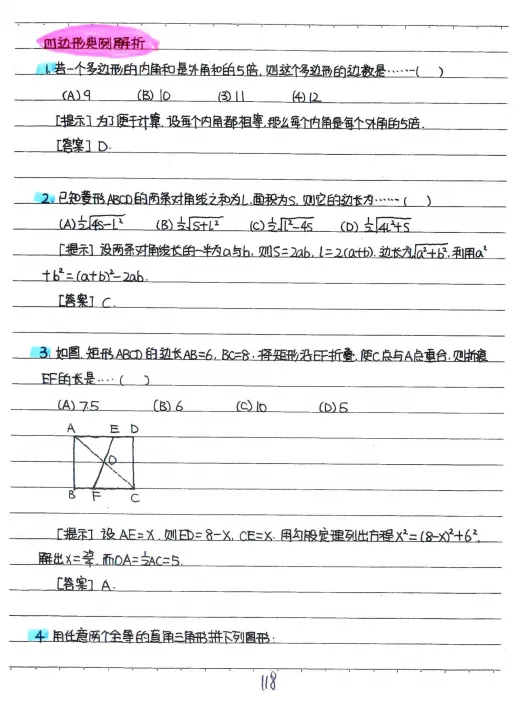 四边形典例解析
1. 若一个多边形的内角和是外角和的5倍, 则这个多边形的边数是……( )
(A) 9 (B) 10 (3) 11 (4) 12
[提示] 为了便于计算, 设每个内角都相等, 那么每个内角是每个外角的5倍.
[答案] D.
2. 已知菱形ABCD的两条对角线之和为l, 面积为S, 则它的边长为……( )
(A) ½√4S-l² (B) ½√S+l² (C) ½√l²-4S (D) ½√4l²+S
[提示] 设两条对角线长的一半为a与b, 则S=2ab, l=2(a+b), 边长为√a²+b², 利用a²
+b²=(a+b)²-2ab.
[答案] C.
3. 如图, 矩形ABCD的边长AB=6, BC=8, 将矩形沿EF折叠, 使C点与A点重合, 则折痕
EF的长是…( )
(A) 7.5 (B) 6 (C) 10 (D) 5
A E D
O
B F C
[提示] 设AE=X, 则ED=8-X, CE=X. 用勾股定理列出方程X²=(8-X)²+6²,
解出X=25/4, 而OA=½AC=5.
[答案] A.
4. 用任意两个全等的直角三角形拼下列图形:
118